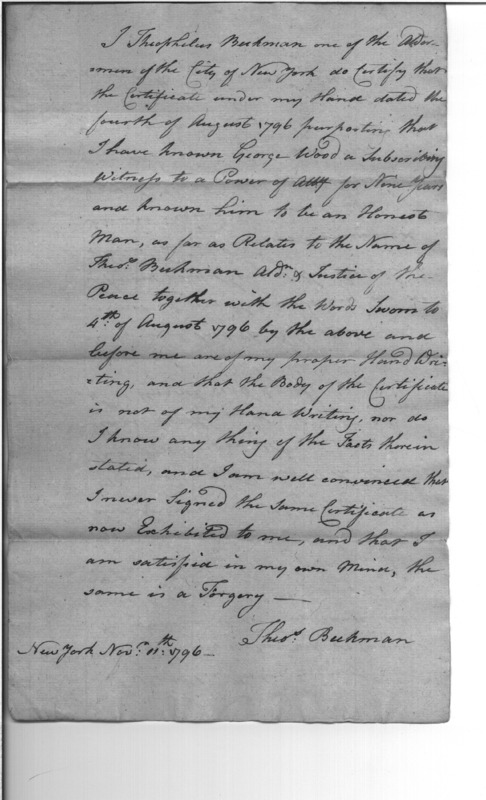 I Theophilus Beekman one of the Alder-
=men of the City of New York do Certify that
the Certificate under my Hand dated the
fourth of August 1796 purporting that
I have known George Wood a Subscribing
Witness to a Power of Atty for Nine Years
and known him to be an Honest
Man, as far as Relates to the Name of
Theos. Beekman Aldn. & Justice of the
Peace together with the Words Sworn to
4th. of August 1796 by the above and
before me are of my proper Hand Wri-
=ting, and that the Body of the Certificate
is not of my Hand Writing, nor do
I know any thing of the Facts therein
stated, and I am well convinced that
I never Signed the same Certificate as
now Exhibited to me, and that I
am satisfied in my own Mind, the
same is a Forgery —
Theos. Beekman
New York Novr. 11th. 1796 —